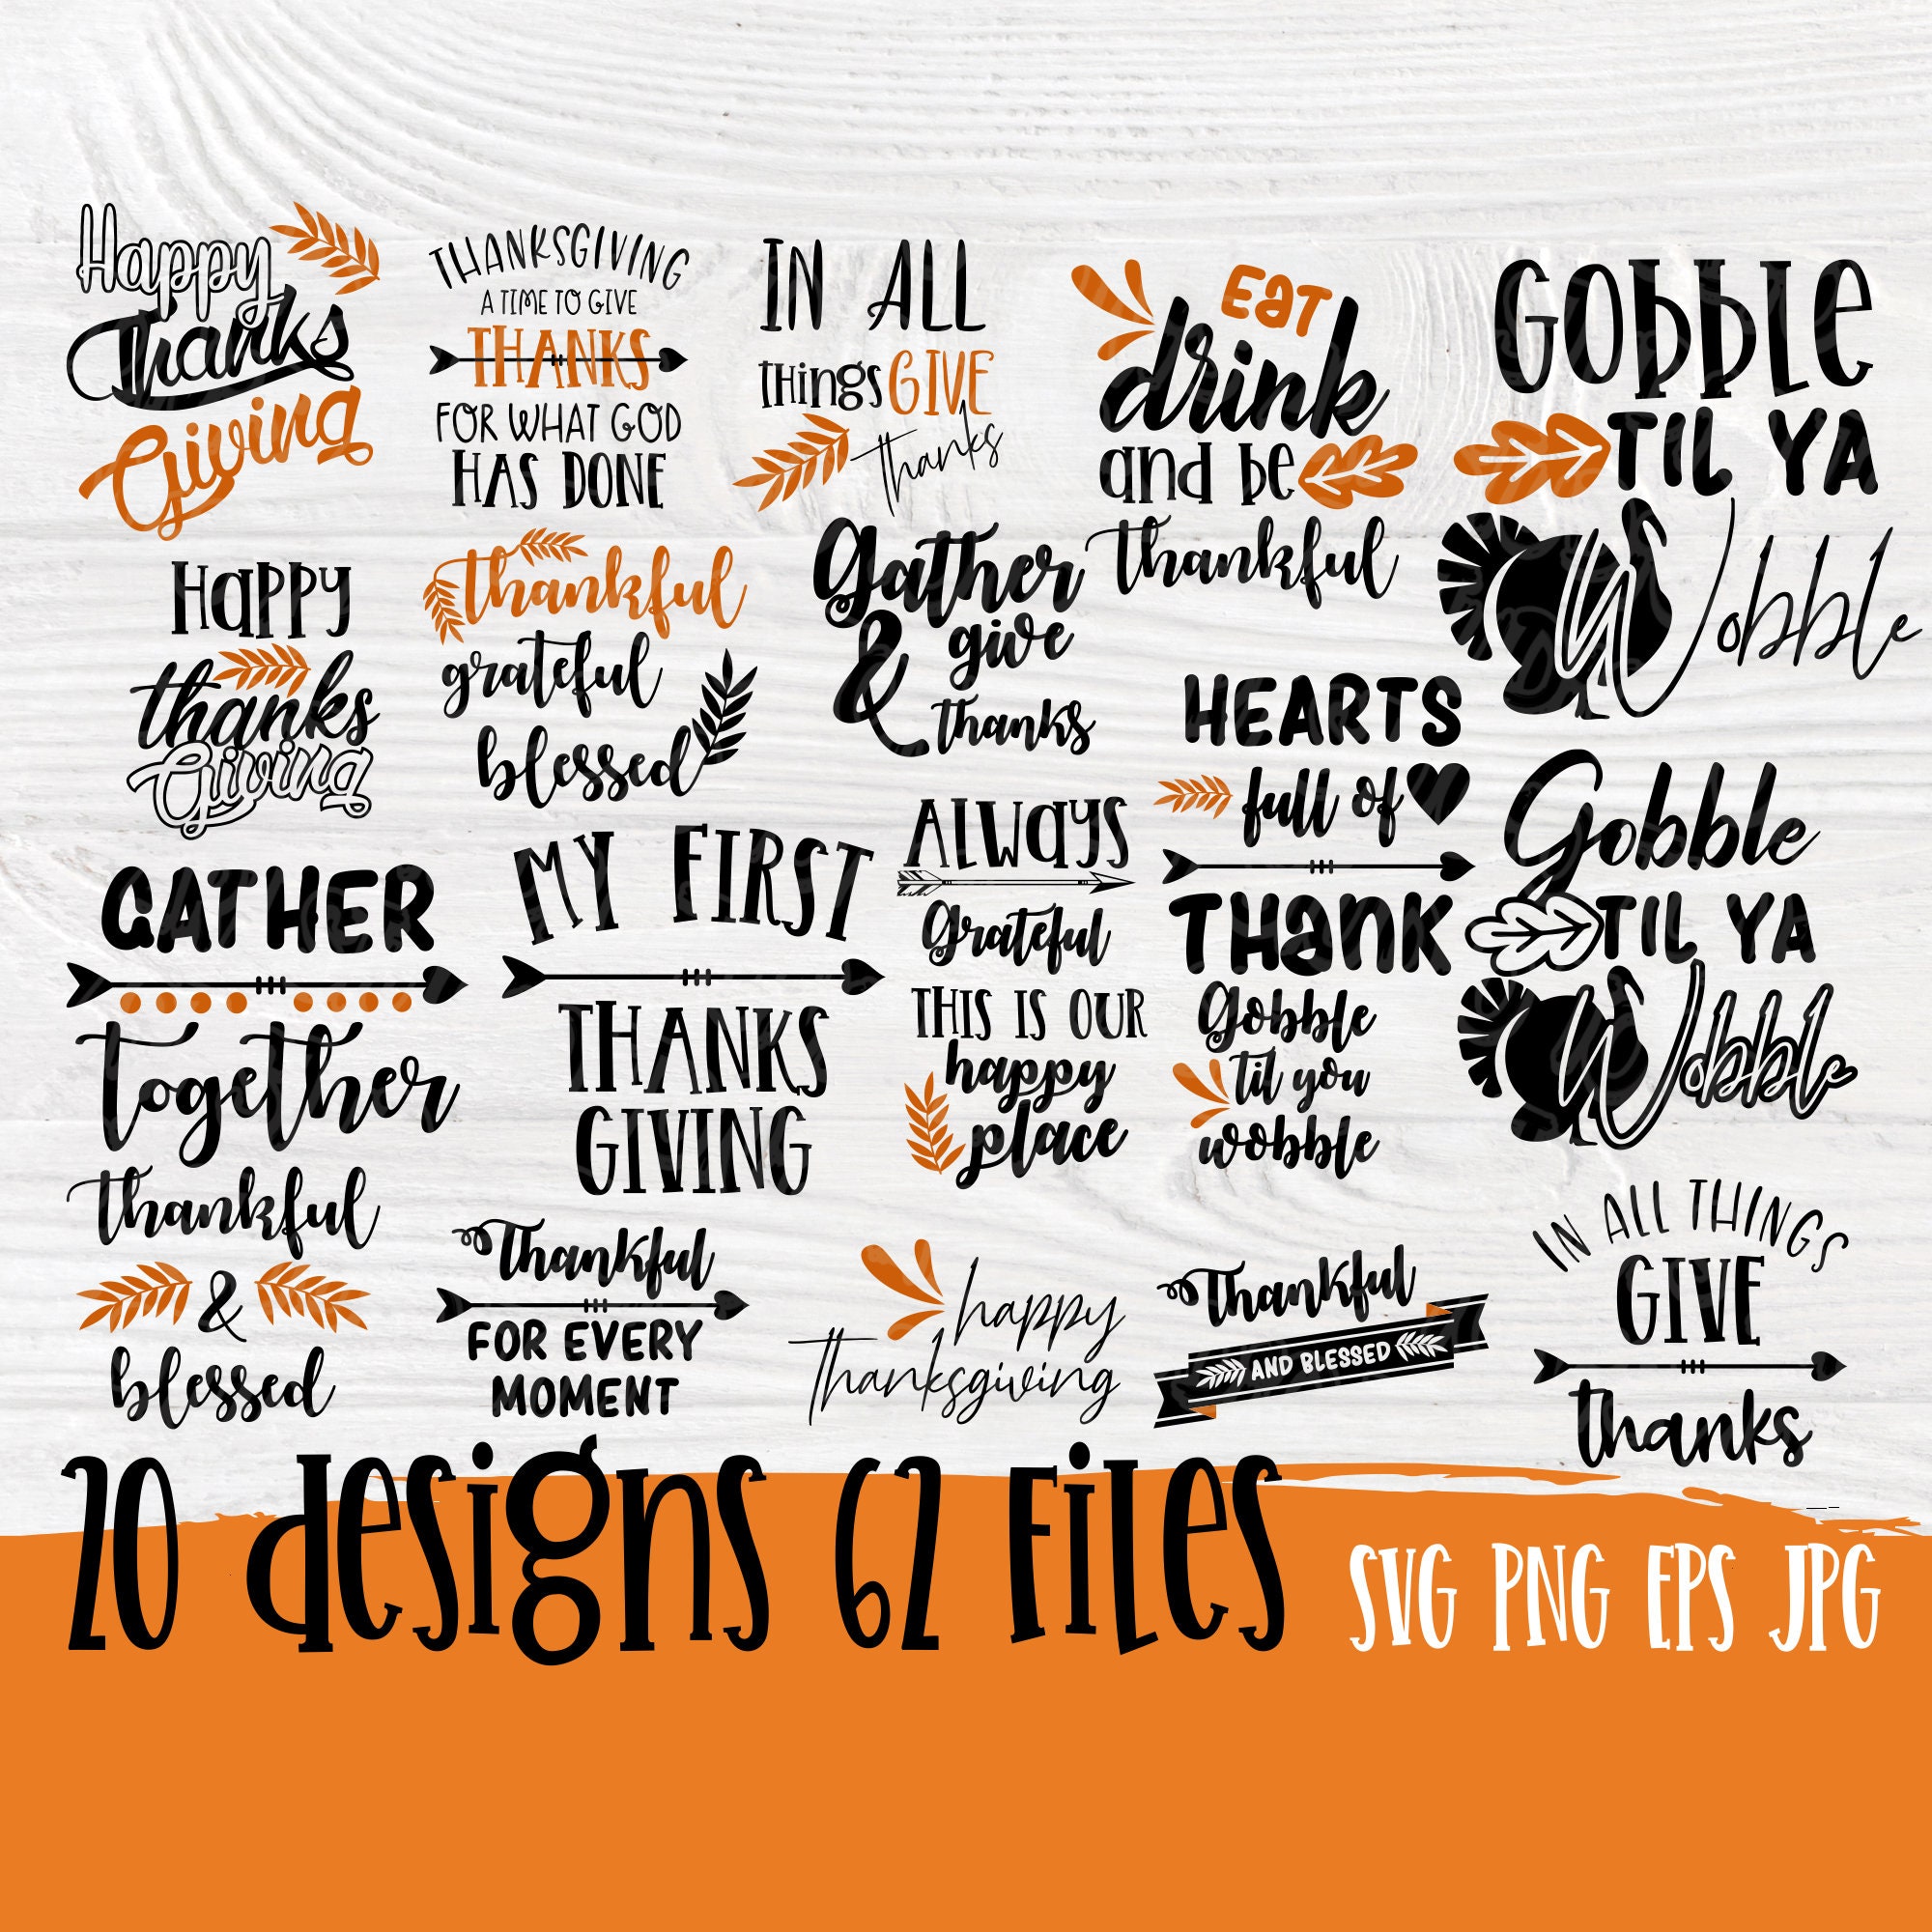 Happy
Thanks
Giving
THANKSGIVING
A TIME TO GIVE
THANKS
FOR WHAT GOD
HAS DONE
IN ALL
things GIVE
thanks
Eat
drink
and be
thankful
GOBBLE
TIL YA
Wobble
Happy
thanks
Giving
thankful
grateful
blessed
Gather
& give
thanks
HEARTS
full of
THANK
Gobble
TIL YA
Wobble
GATHER
together
MY FIRST
THANKS
GIVING
ALWAYS
Grateful
THIS IS OUR
happy
place
Gobble
til you
wobble
thankful
&
blessed
Thankful
FOR EVERY
MOMENT
happy
thanksgiving
Thankful
AND BLESSED
IN ALL THINGS
GIVE
thanks
20 designs 62 Files
SVG PNG EPS JPG